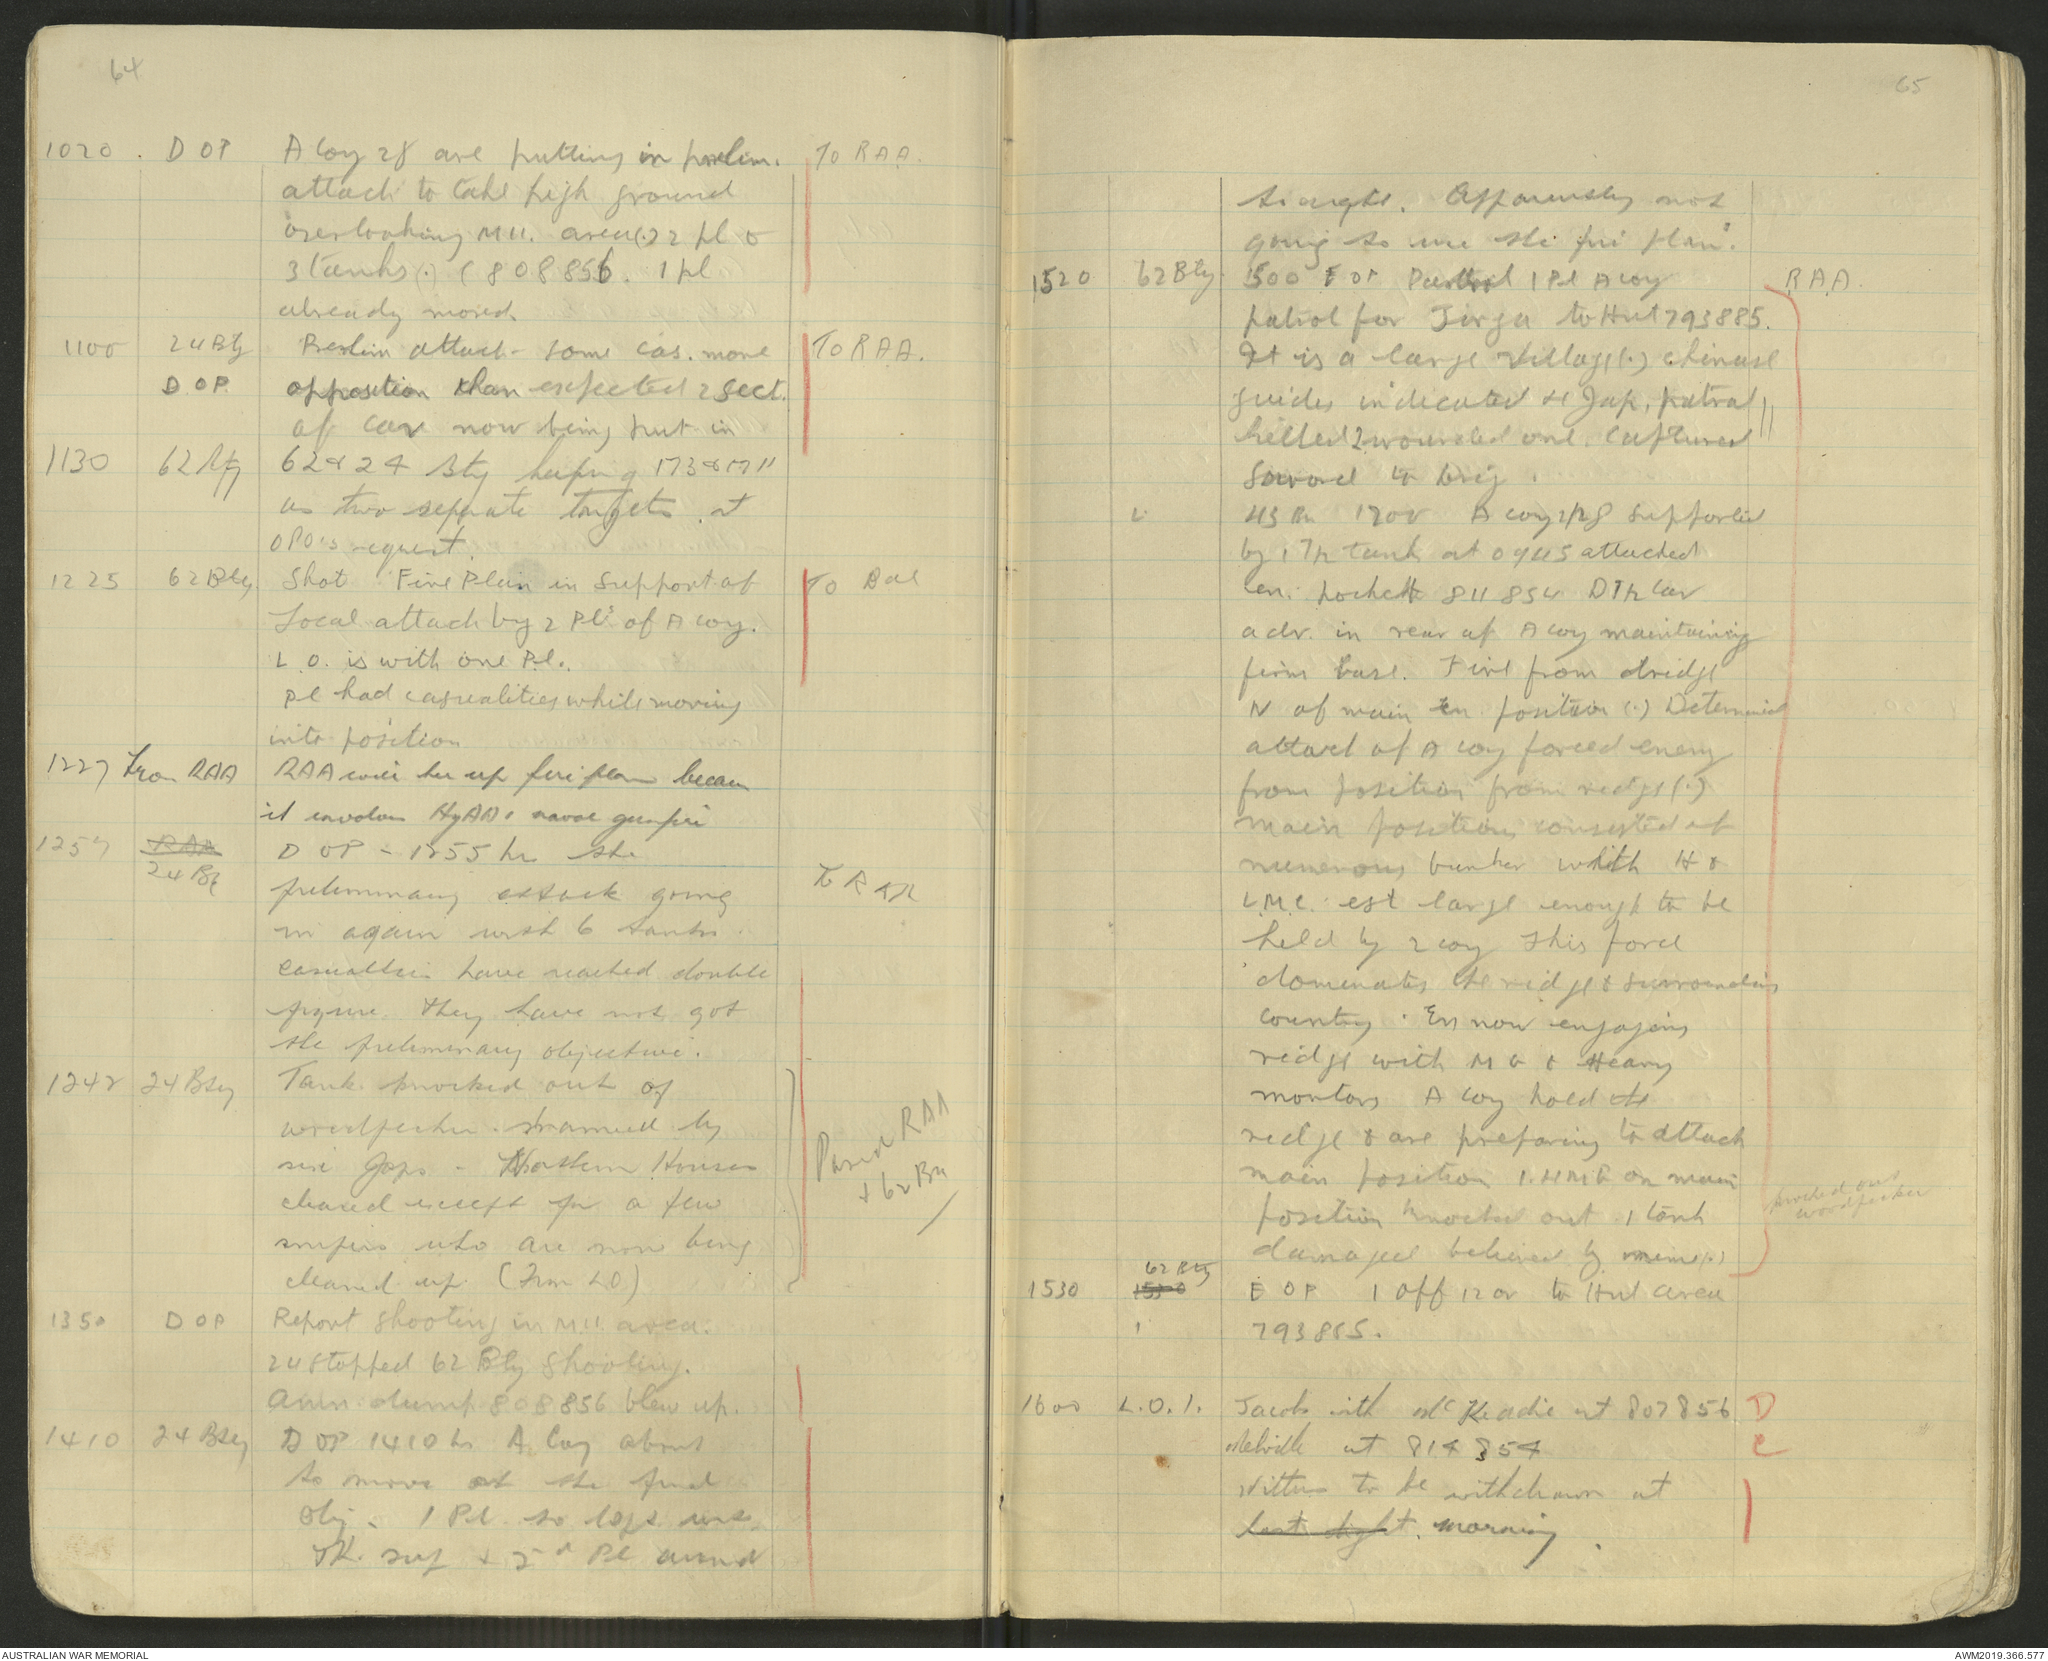 64
1020. D OP A Coy 28 are putting in prelim. To RAA.
attack to take high ground
overlooking M11. area(.) 2 pl &
3 tanks (.) (808856. 1 pl
already moved.
1100 24 Bty Prelim attack - some cas. more To RAA.
D OP. opposition than expected 2 sect.
of Cav now being put in
1130 62 Bty 62 & 24 Bty keeping 173 & 1711
as two separate targets at
OPO's request.
1225 62 Bty. Shot Fire Plan in Support of To Bde
Local attack by 2 Pls of A coy.
L.O. is with one Pl.
Pl had casualities while moving
into position
1227 From RAA RAA will tee up fire plan because
it involves HyAA & naval gunfire
1257 RAA D OP - 1255 hrs the
24 Bty preliminary attack going To RAA
in again with 6 tanks.
Casualties have reached double
figure. They have not got
the preliminary objective.
1242 24 Bty Tank knocked out by
woodpecker. manned by
six Japs - Northern Houses
cleared except for a few
snipers who are now being
cleared up. (From LO)
Passed RAA
& 62 Bn
1350 D OP Report shooting in M11. area.
24 stopped 62 Bty Shooting.
Amn dump 808856 blew up.
1410 24 Bty D OP 1410 hrs A Coy about
to move at the final
Obj. 1 Pl. so to
TK. sup & 2nd Pl around
65
straight. Apparently not
going to use the fire plan.
1520 62 Bty. 1500 E OP Patrol 1 Pl A coy RAA.
patrol for Jirga to Hut 793885.
It is a large village(.) Chinese
guides indicated 4 Jap, patrol
killed 2 wounded one. Captured
Sword to Brig.
" 43 Bn 1200 A coy 2/28 supported
by 1 Tp tank at 0945 attacked
en. pocket 811854 D Tp Cav
adv. in rear of A coy maintaining
firm base. Fire from ridge
N of main En position (.) Determined
attack of A coy forced enemy
from position from ridge (.)
main position consisted of
numerous bunker with H &
L.M.G. est large enough to be
held by 2 coy This force
dominates the ridge & surrounding
country. En now engaging
ridge with MG & Heavy
mortars A Coy hold the
ridge & are preparing to attack
main position 1. HMG on main
position knocked out. 1 tank
damaged believed by mine (.)
knocked out
woodpecker
62 Bty
1530 1530 E OP 1 Off 12 or to Hut area
" 793885.
1600 L.O.1. Jacob with McKeadie at 807856 D
Melville at 814854 C
Vitties to be withdrawn at
last light. morning.
AUSTRALIAN WAR MEMORIAL
AWM2019.366.577